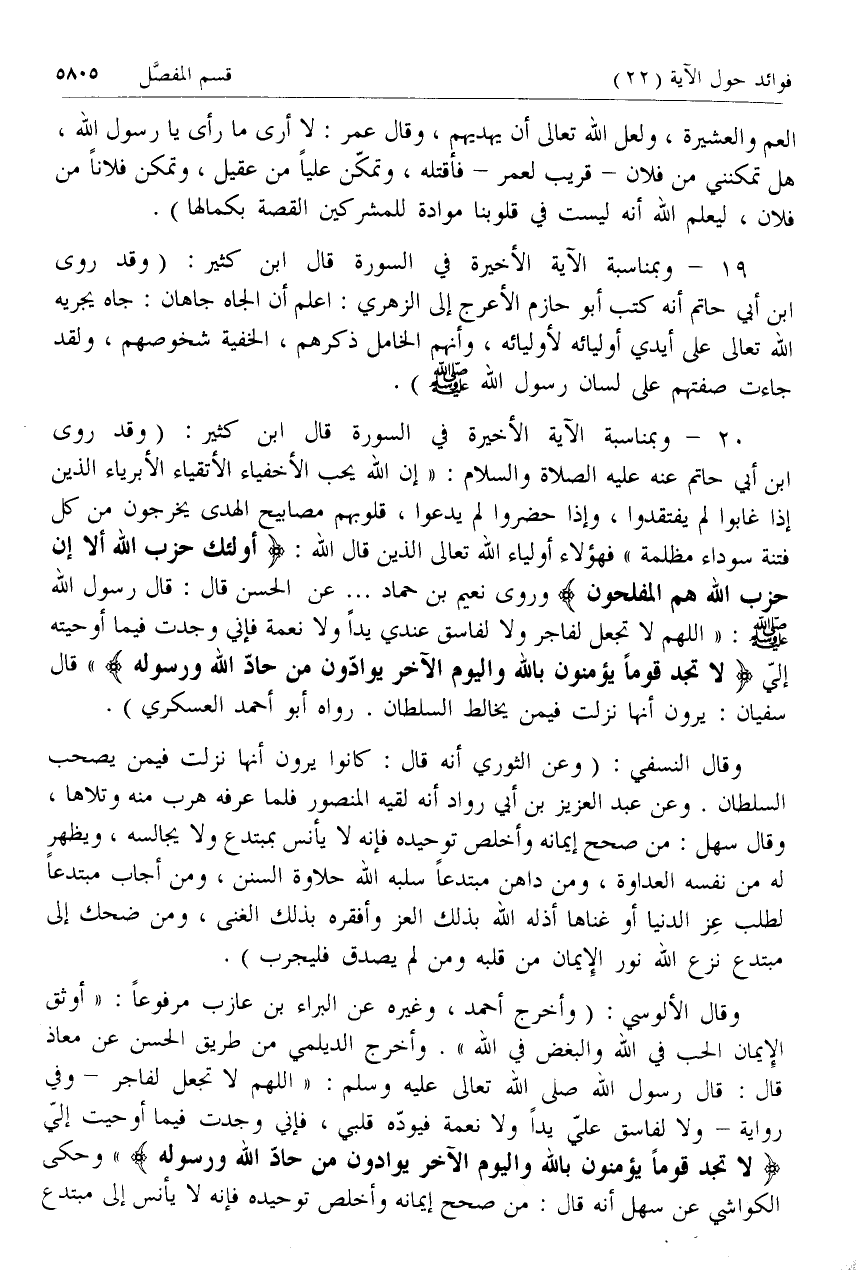 فوائد حول الآية ( ٢٢ ) قسم المفصَّل ٥٨٠٥
العم والعشيرة ، ولعل الله تعالى أن يهديهم ، وقال عمر : لا أرى ما رأى يا رسول الله ،
هل تمكنني من فلان – قريب لعمر – فأقتله ، وتمكّن علياً من عقيل ، وتمكن فلاناً من
فلان ، ليعلم الله أنه ليست في قلوبنا موادة للمشركين القصة بكمالها ) .
١٩ – وبمناسبة الآية الأخيرة في السورة قال ابن كثير : ( وقد روى
ابن أبي حاتم أنه كتب أبو حازم الأعرج إلى الزهري : اعلم أن الجاه جاهان : جاه يجريه
الله تعالى على أيدي أوليائه لأوليائه ، وأنهم الخامل ذكرهم ، الخفية شخوصهم ، ولقد
جاءت صفتهم على لسان رسول الله ﷺ ) .
٢٠ – وبمناسبة الآية الأخيرة في السورة قال ابن كثير : ( وقد روى
ابن أبي حاتم عنه عليه الصلاة والسلام : « إن الله يحب الأخفياء الأتقياء الأبرياء الذين
إذا غابوا لم يفتقدوا ، وإذا حضروا لم يدعوا ، قلوبهم مصابيح الهدى يخرجون من كل
فتنة سوداء مظلمة » فهؤلاء أولياء الله تعالى الذين قال الله : ﴿ أولئك حزب الله ألا إن
حزب الله هم المفلحون ﴾ وروى نعيم بن حماد ... عن الحسن قال : قال رسول الله
ﷺ : « اللهم لا تجعل لفاجر ولا لفاسق عندي يداً ولا نعمة فإني وجدت فيما أوحيته
إليّ ﴿ لا تجد قوماً يؤمنون بالله واليوم الآخر يوادّون من حادّ الله ورسوله ﴾ » قال
سفيان : يرون أنها نزلت فيمن يخالط السلطان . رواه أبو أحمد العسكري ) .
وقال النسفي : ( وعن الثوري أنه قال : كانوا يرون أنها نزلت فيمن يصحب
السلطان . وعن عبد العزيز بن أبي رواد أنه لقيه المنصور فلما عرفه هرب منه وتلاها ،
وقال سهل : من صحح إيمانه وأخلص توحيده فإنه لا يأنس بمبتدع ولا يجالسه ، ويظهر
له من نفسه العداوة ، ومن داهن مبتدعاً سلبه الله حلاوة السنن ، ومن أجاب مبتدعاً
لطلب عِز الدنيا أو غناها أذله الله بذلك العز وأفقره بذلك الغنى ، ومن ضحك إلى
مبتدع نزع الله نور الإيمان من قلبه ومن لم يصدق فليجرب ) .
وقال الألوسي : ( وأخرج أحمد ، وغيره عن البراء بن عازب مرفوعاً : « أوثق
الإيمان الحب في الله والبغض في الله » . وأخرج الديلمي من طريق الحسن عن معاذ
قال : قال رسول الله صلى الله تعالى عليه وسلم : « اللهم لا تجعل لفاجر – وفي
رواية – ولا لفاسق عليّ يداً ولا نعمة فيودّه قلبي ، فإني وجدت فيما أوحيت إليّ
﴿ لا تجد قوماً يؤمنون بالله واليوم الآخر يوادون من حادّ الله ورسوله ﴾ » وحكى
الكواشي عن سهل أنه قال : من صحح إيمانه وأخلص توحيده فإنه لا يأنس إلى مبتدع